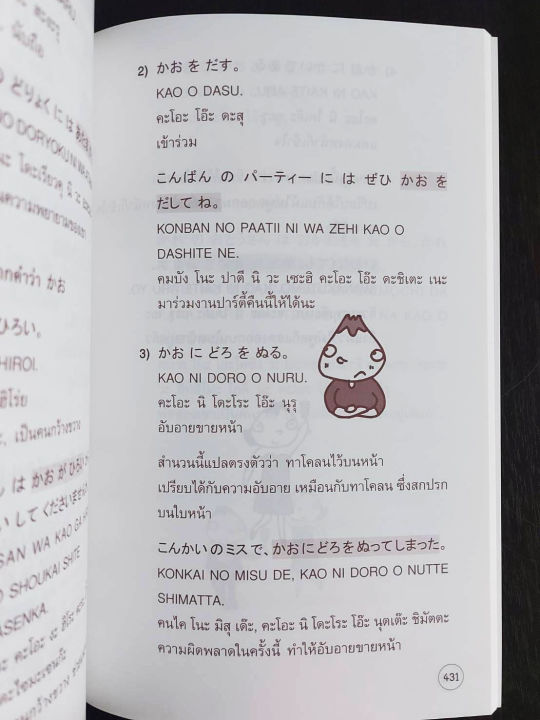 ากคำว่า かお
ひろい。
HIROI.
ฮิโร่ย
, เป็นคนกว้างขวาง
は かお が ひろい
い して くださいませ
SAN WA KAO GA
SHOUKAI SHITE
ASENKA.
2) かお を だす。
KAO O DASU.
คะโอะ โอ๊ะ ดะสุ
เข้าร่วม
こんばん の パーティー に は ぜひ かお を
だして ね。
KONBAN NO PAATII NI WA ZEHI KAO O
DASHITE NE.
คมบัง โนะ ปาตี นิ วะ เซะฮิ คะโอะ โอ๊ะ ดะชิเตะ เนะ
มาร่วมงานปาร์ตี้คืนนี้ให้ได้นะ
3) かお に どろ を ぬる。
KAO NI DORO O NURU.
คะโอะ นิ โดะโระ โอ๊ะ นุรุ
อับอายขายหน้า
สำนวนนี้แปลตรงตัวว่า ทาโคลนไว้บนหน้า
เปรียบได้กับความอับอาย เหมือนกับทาโคลน ซึ่งสกปรก
บนใบหน้า
こんかい の ミス で、かお に どろ を ぬって しまった。
KONKAI NO MISU DE, KAO NI DORO O NUTTE
SHIMATTA.
คนไค โนะ มิสุ เด๊ะ, คะโอะ นิ โดะโระ โอ๊ะ นุตเต๊ะ ชิมัตตะ
ความผิดพลาดในครั้งนี้ ทำให้อับอายขายหน้า
431